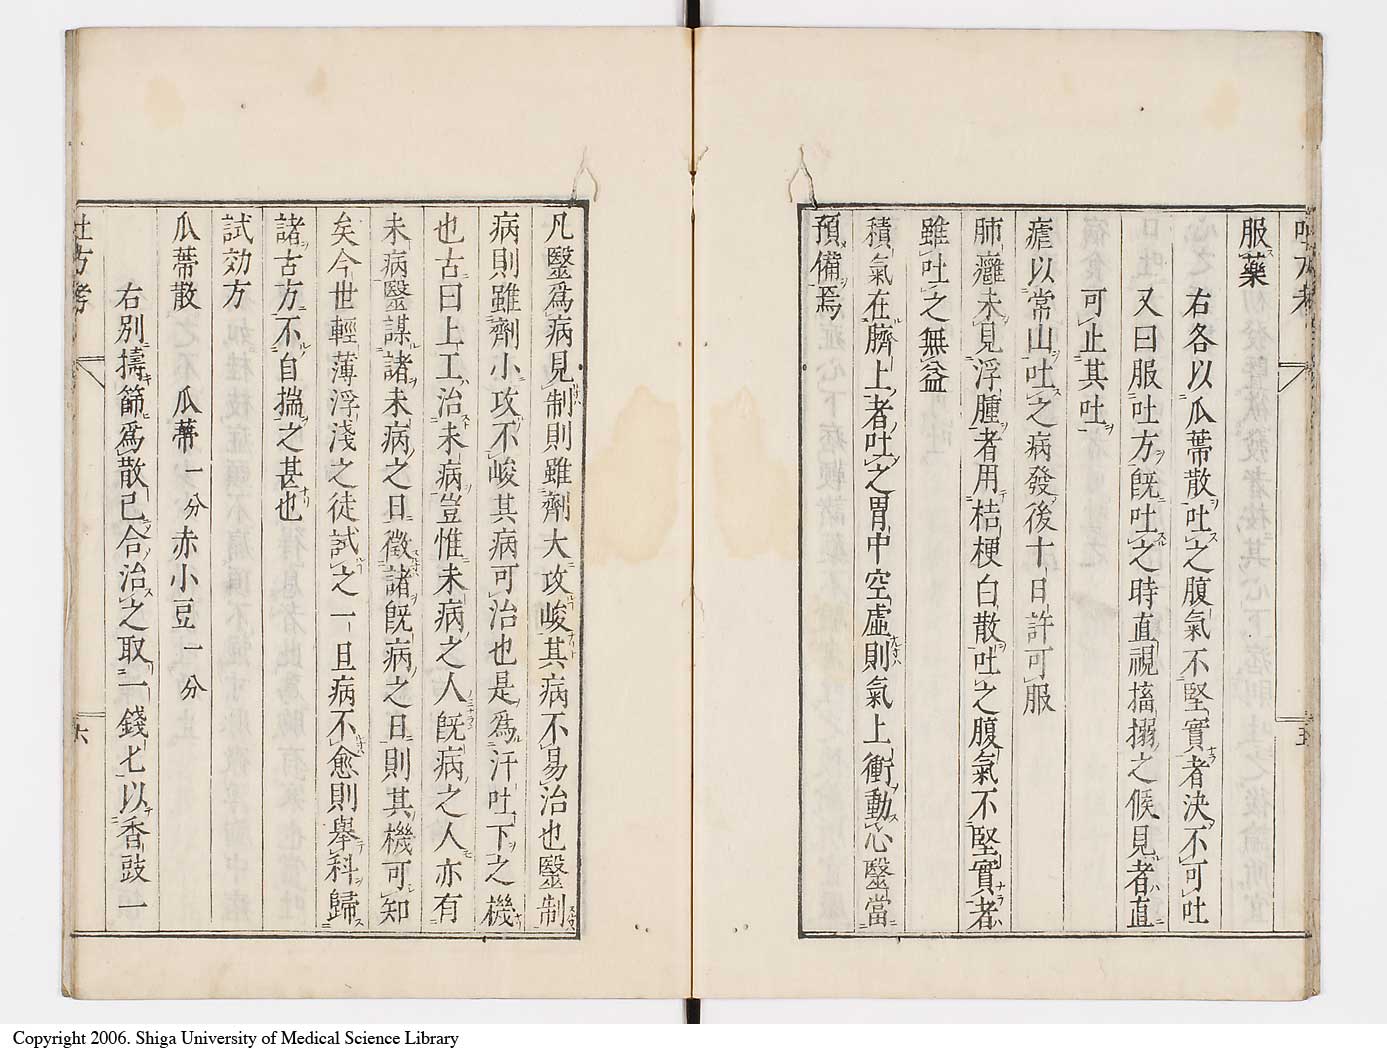 服藥
右各以瓜蒂散吐之腹氣不堅實者決不可吐
又曰服吐方既吐之時直視搐搦之候見者直
可止其吐
瘧以常山吐之病發後十日許可服
肺癰未見浮腫者用桔梗白散吐之腹氣不堅實者
雖吐之無益
積氣在臍上者吐之胃中空虛則氣上衝動心醫當
預備焉
凡醫爲病見制則雖劑大攻峻其病不易治也醫制
病則雖劑小攻不峻其病可治也是爲汗吐下之機
也古曰上工治未病豈惟未病之人既病之人亦有
未病醫謀諸未病之日徵諸既病之日則其機可知
矣今世輕薄浮淺之徒試之一旦病不愈則舉科歸
諸古方不自揣之甚也
試効方
瓜蒂散　瓜蒂一分赤小豆一分
右別擣篩爲散已合治之取一錢匕以香豉一
吐方考
六
Copyright 2006. Shiga University of Medical Science Library